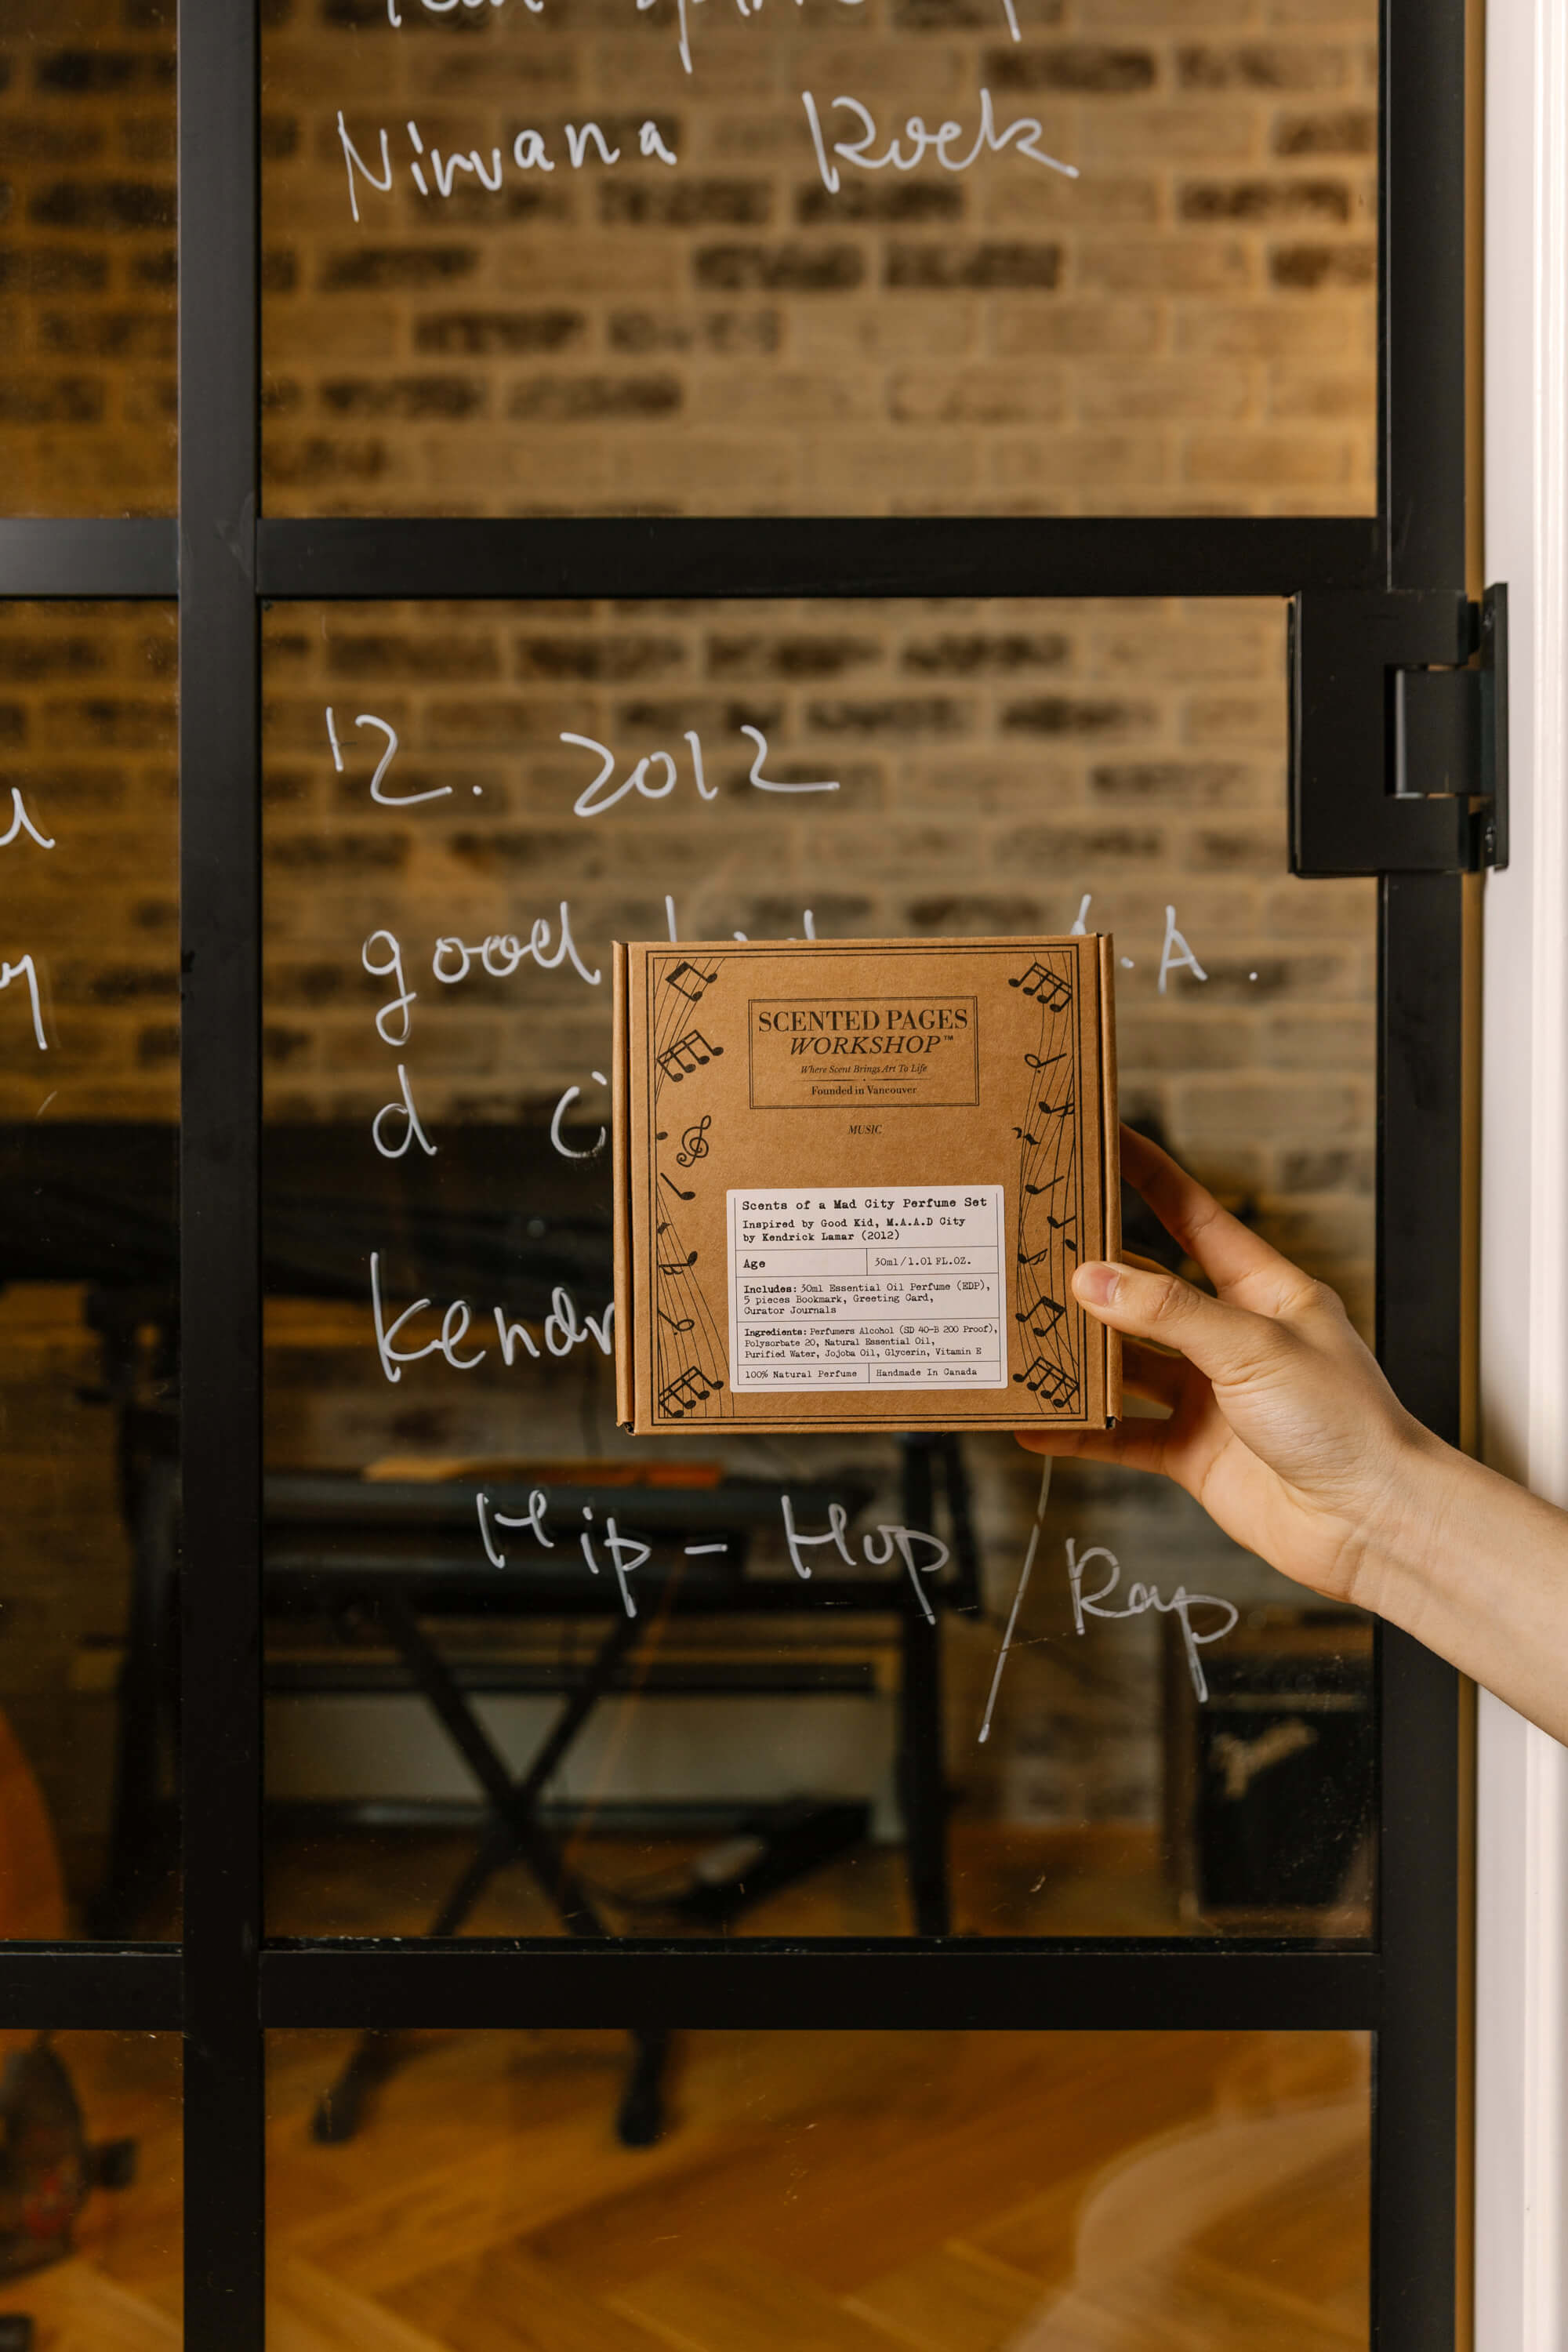 Nirvana Rock
12. 2012
good .A.
d
Kendr
SCENTED PAGES
WORKSHOP™
Where Scent Brings Art To Life
Founded in Vancouver
MUSIC
Scents of a Mad City Perfume Set
Inspired by Good Kid, M.A.A.D City
by Kendrick Lamar (2012)
Age 30ml/1.01 FL.OZ.
Includes: 30ml Essential Oil Perfume (EDP),
5 pieces Bookmark, Greeting Card,
Curator Journals
Ingredients: Perfumers Alcohol (SD 40-B 200 Proof),
Polysorbate 20, Natural Essential Oil,
Purified Water, Jojoba Oil, Glycerin, Vitamin E
100% Natural Perfume Handmade In Canada
Hip-Hop / Rap
Fender